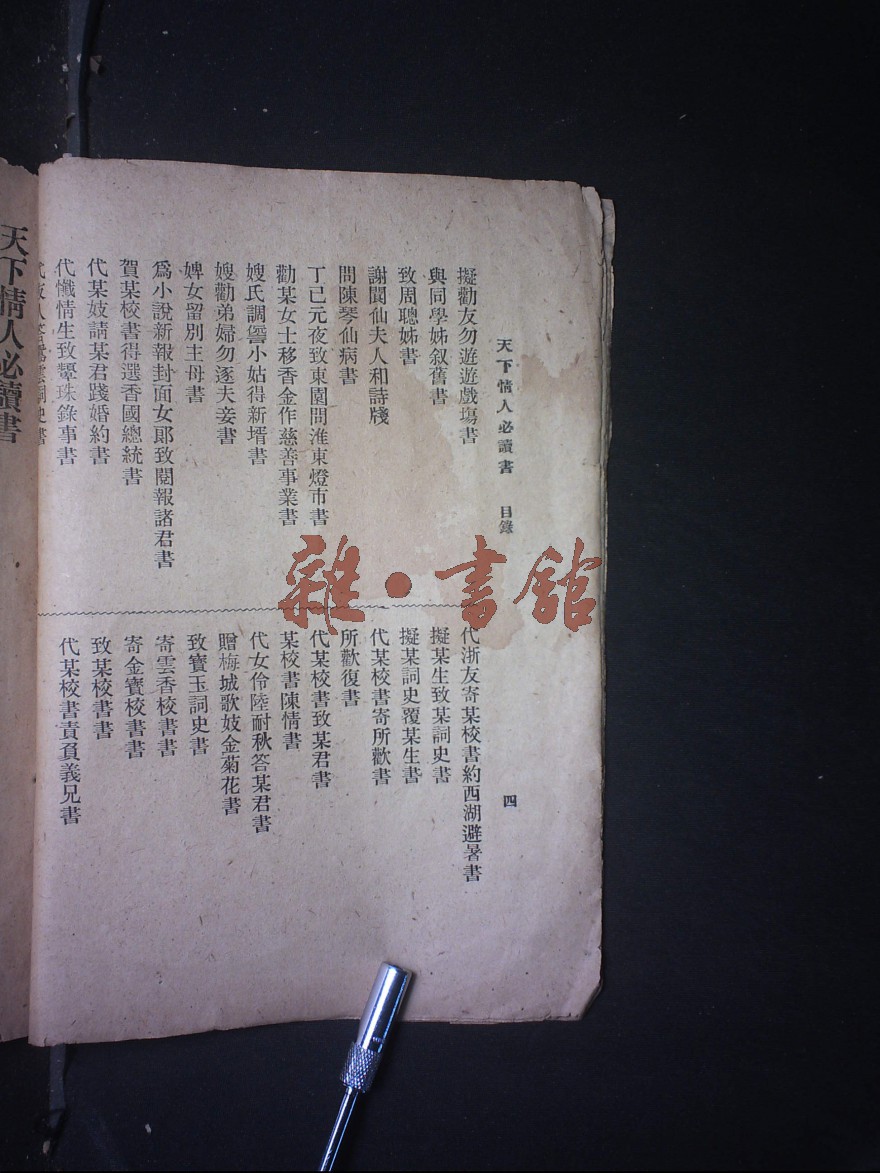 天下情人必讀書　目錄
四
擬勸友勿遊遊戲塲書
與同學姊叙舊書
致周聰姊書
謝閬仙夫人和詩牋
問陳琴仙病書
丁巳元夜致東園問淮東燈市書
勸某女士移香金作慈善事業書
嫂氏調謔小姑得新壻書
嫂勸弟婦勿逐夫妾書
婢女留別主母書
爲小說新報封面女郞致閱報諸君書
賀某校書得選香國總統書
代某妓請某君踐婚約書
代懺情生致顰珠錄事書
代友人答 雲詞史書
代浙友寄某校書約西湖避暑書
擬某生致某詞史書
擬某詞史覆某生書
代某校書寄所歡書
所歡復書
代某校書致某君書
某校書陳情書
代女伶陸耐秋答某君書
贈梅城歌妓金菊花書
致寶玉詞史書
寄雲香校書書
寄金寶校書書
致某校書書
代某校書責負義兄書
天下情人必讀書
雜·書館